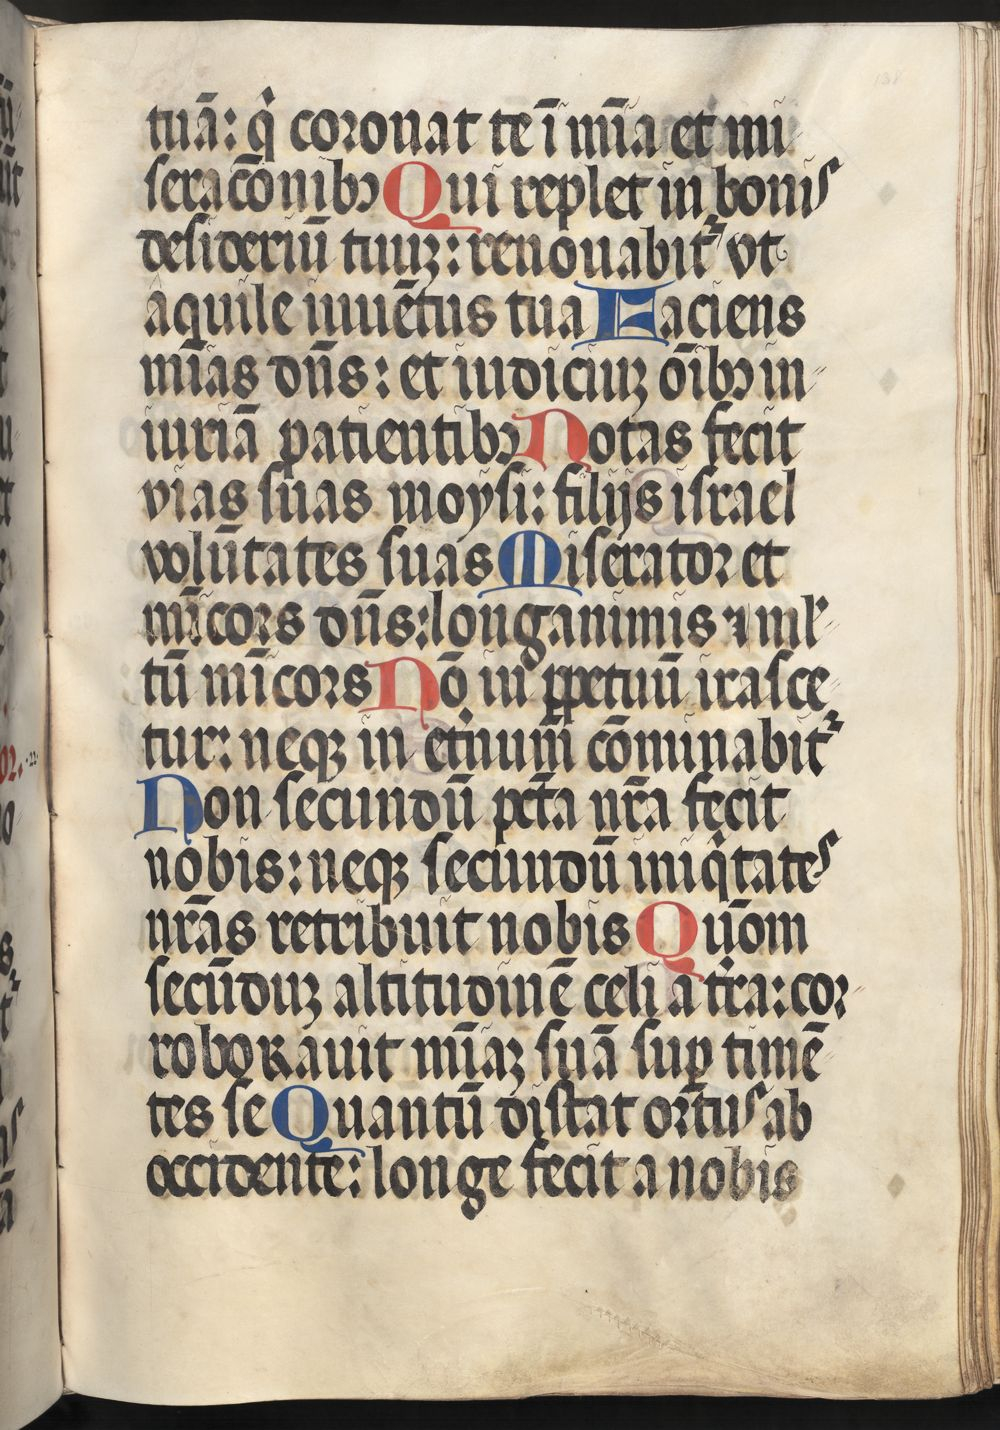 tuā: q̇ coronat te ī mīa et mi
seracōnibꝫ Qui replet in bonis
desideriū tuuꝫ: renouabit᷑ vt
aquile iuuētus tua Faciens
mīas dn̄s: et iudiciuꝫ oībꝫ in
iuriā patientibꝫ Notas fecit
vias suas moysi: filijs israel
volūtates suas Miserator et
mīcors dn̄s: longanimis ⁊ ml᷑
tū mīcors Nō in ꝑpetuū irasce
tur: neqꝫ in et̄num cōminabit᷑
Non secundū pctā nrā fecit
nobis: neqꝫ secundū iniq̇tates
nrās retribuit nobis Qūom
secūduꝫ altitudinē celi a trā: cor
roborauit mīaꝫ suā suꝑ timē
tes se Quantū distat ortus ab
occidente: longe fecit a nobis
138